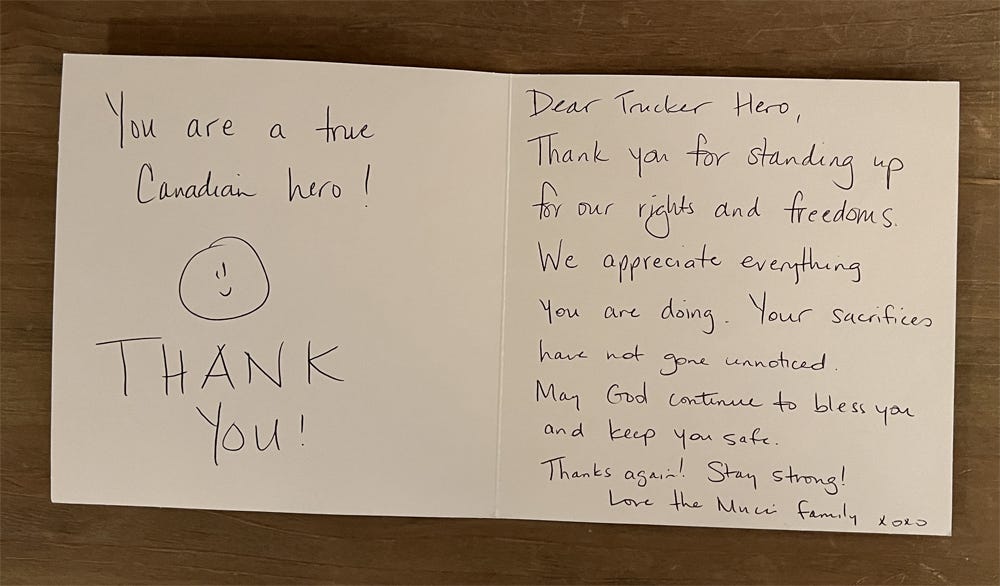 You are a true
Canadian hero!
THANK
YOU!
Dear Trucker Hero,
Thank you for standing up
for our rights and freedoms.
We appreciate everything
you are doing. Your sacrifices
have not gone unnoticed.
May God continue to bless you
and keep you safe.
Thanks again! Stay strong!
Love the family xoxo